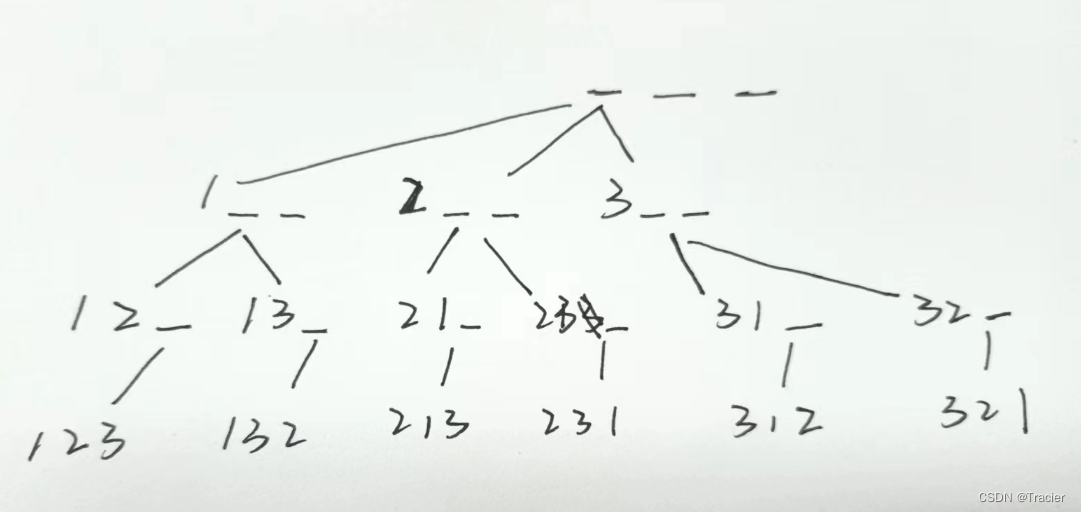 _ _ _
1 _ _ 2 _ _ 3 _ _
12 _ 13 _ 21 _ 23 _ 31 _ 32 _
123 132 213 231 312 321
CSDN @Tracier